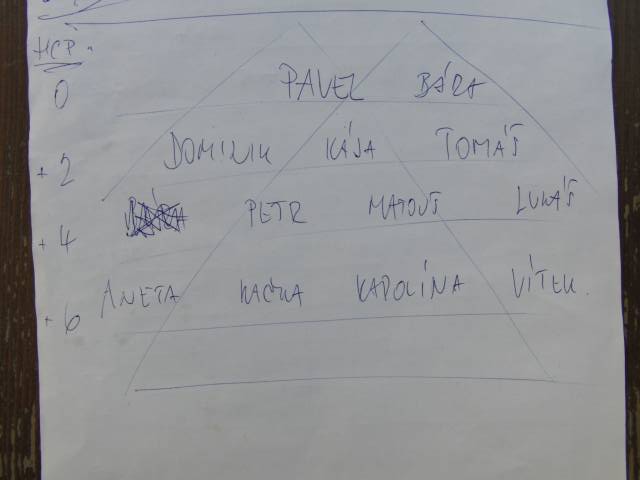 HCP:
0 PAVEL BÁRA
+2 DOMINIK KÁJA TOMÁŠ
+4 PETR MATOUŠ LUKÁŠ
+6 ANETA KAČKA KAROLÍNA VÍTEK.